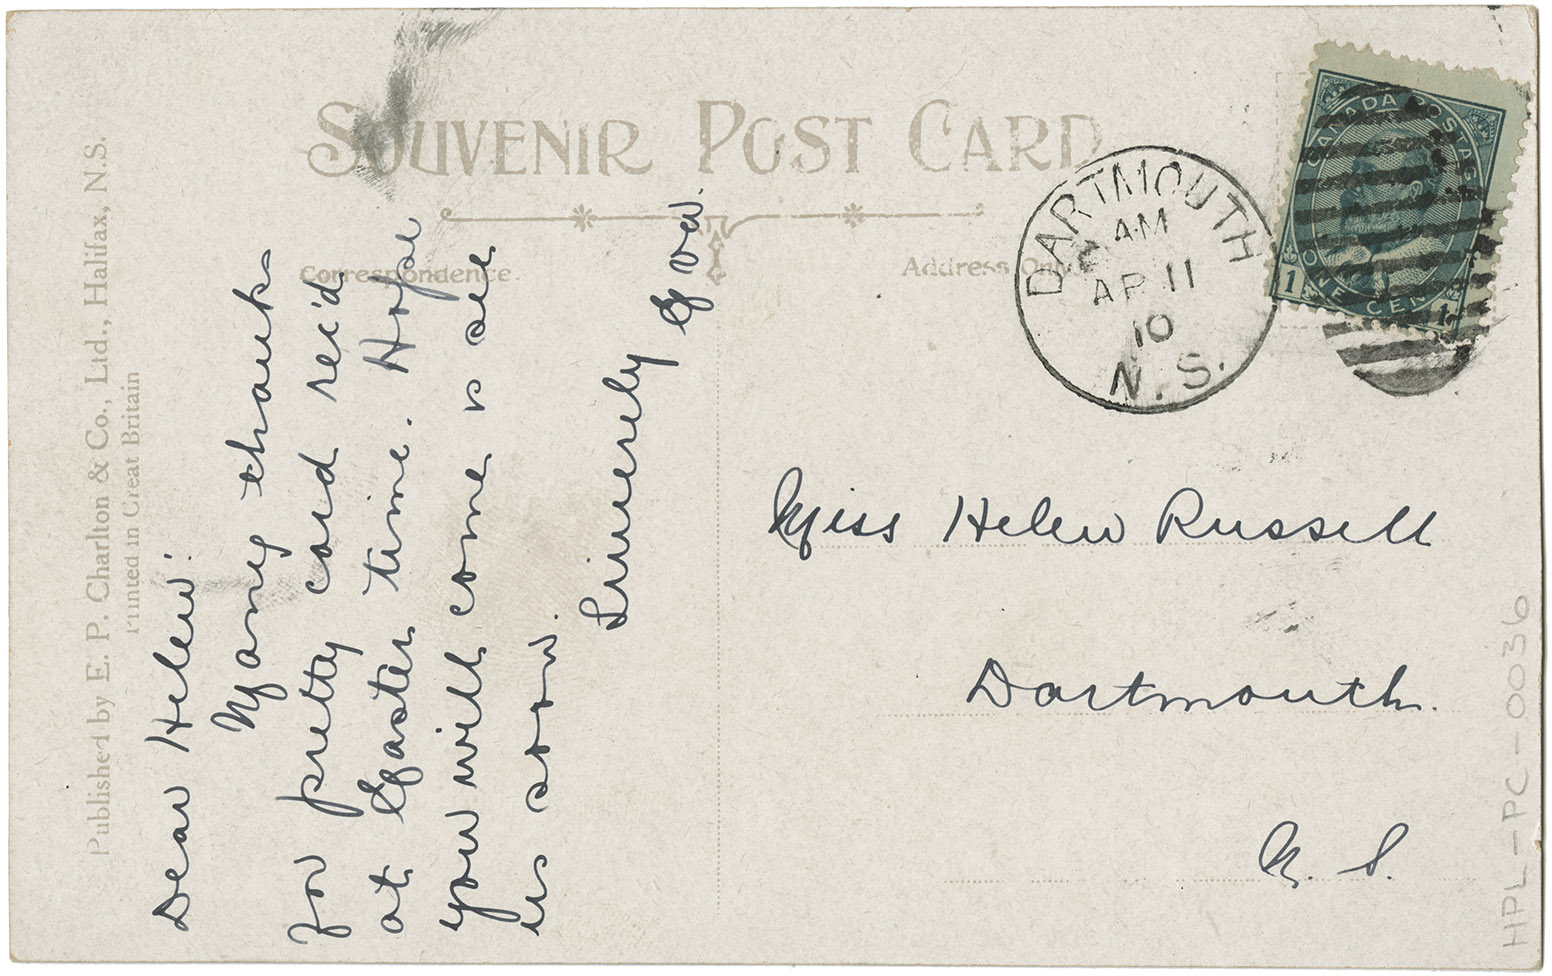 SOUVENIR POST CARD
Correspondence.
Address Only
Published by E. P. Charlton & Co., Ltd., Halifax, N.S.
Printed in Great Britain
Dear Helen:
Many thanks
for pretty card rec'd
at Easter time. Hope
you will come & see
us soon.
Sincerely
Eva.
DARTMOUTH
AM
AP 11
10
N.S.
CANADA POSTAGE
1 ONE CENT 1
Miss Helen Russell
Dartmouth.
N. S.
HPL-PC-0036